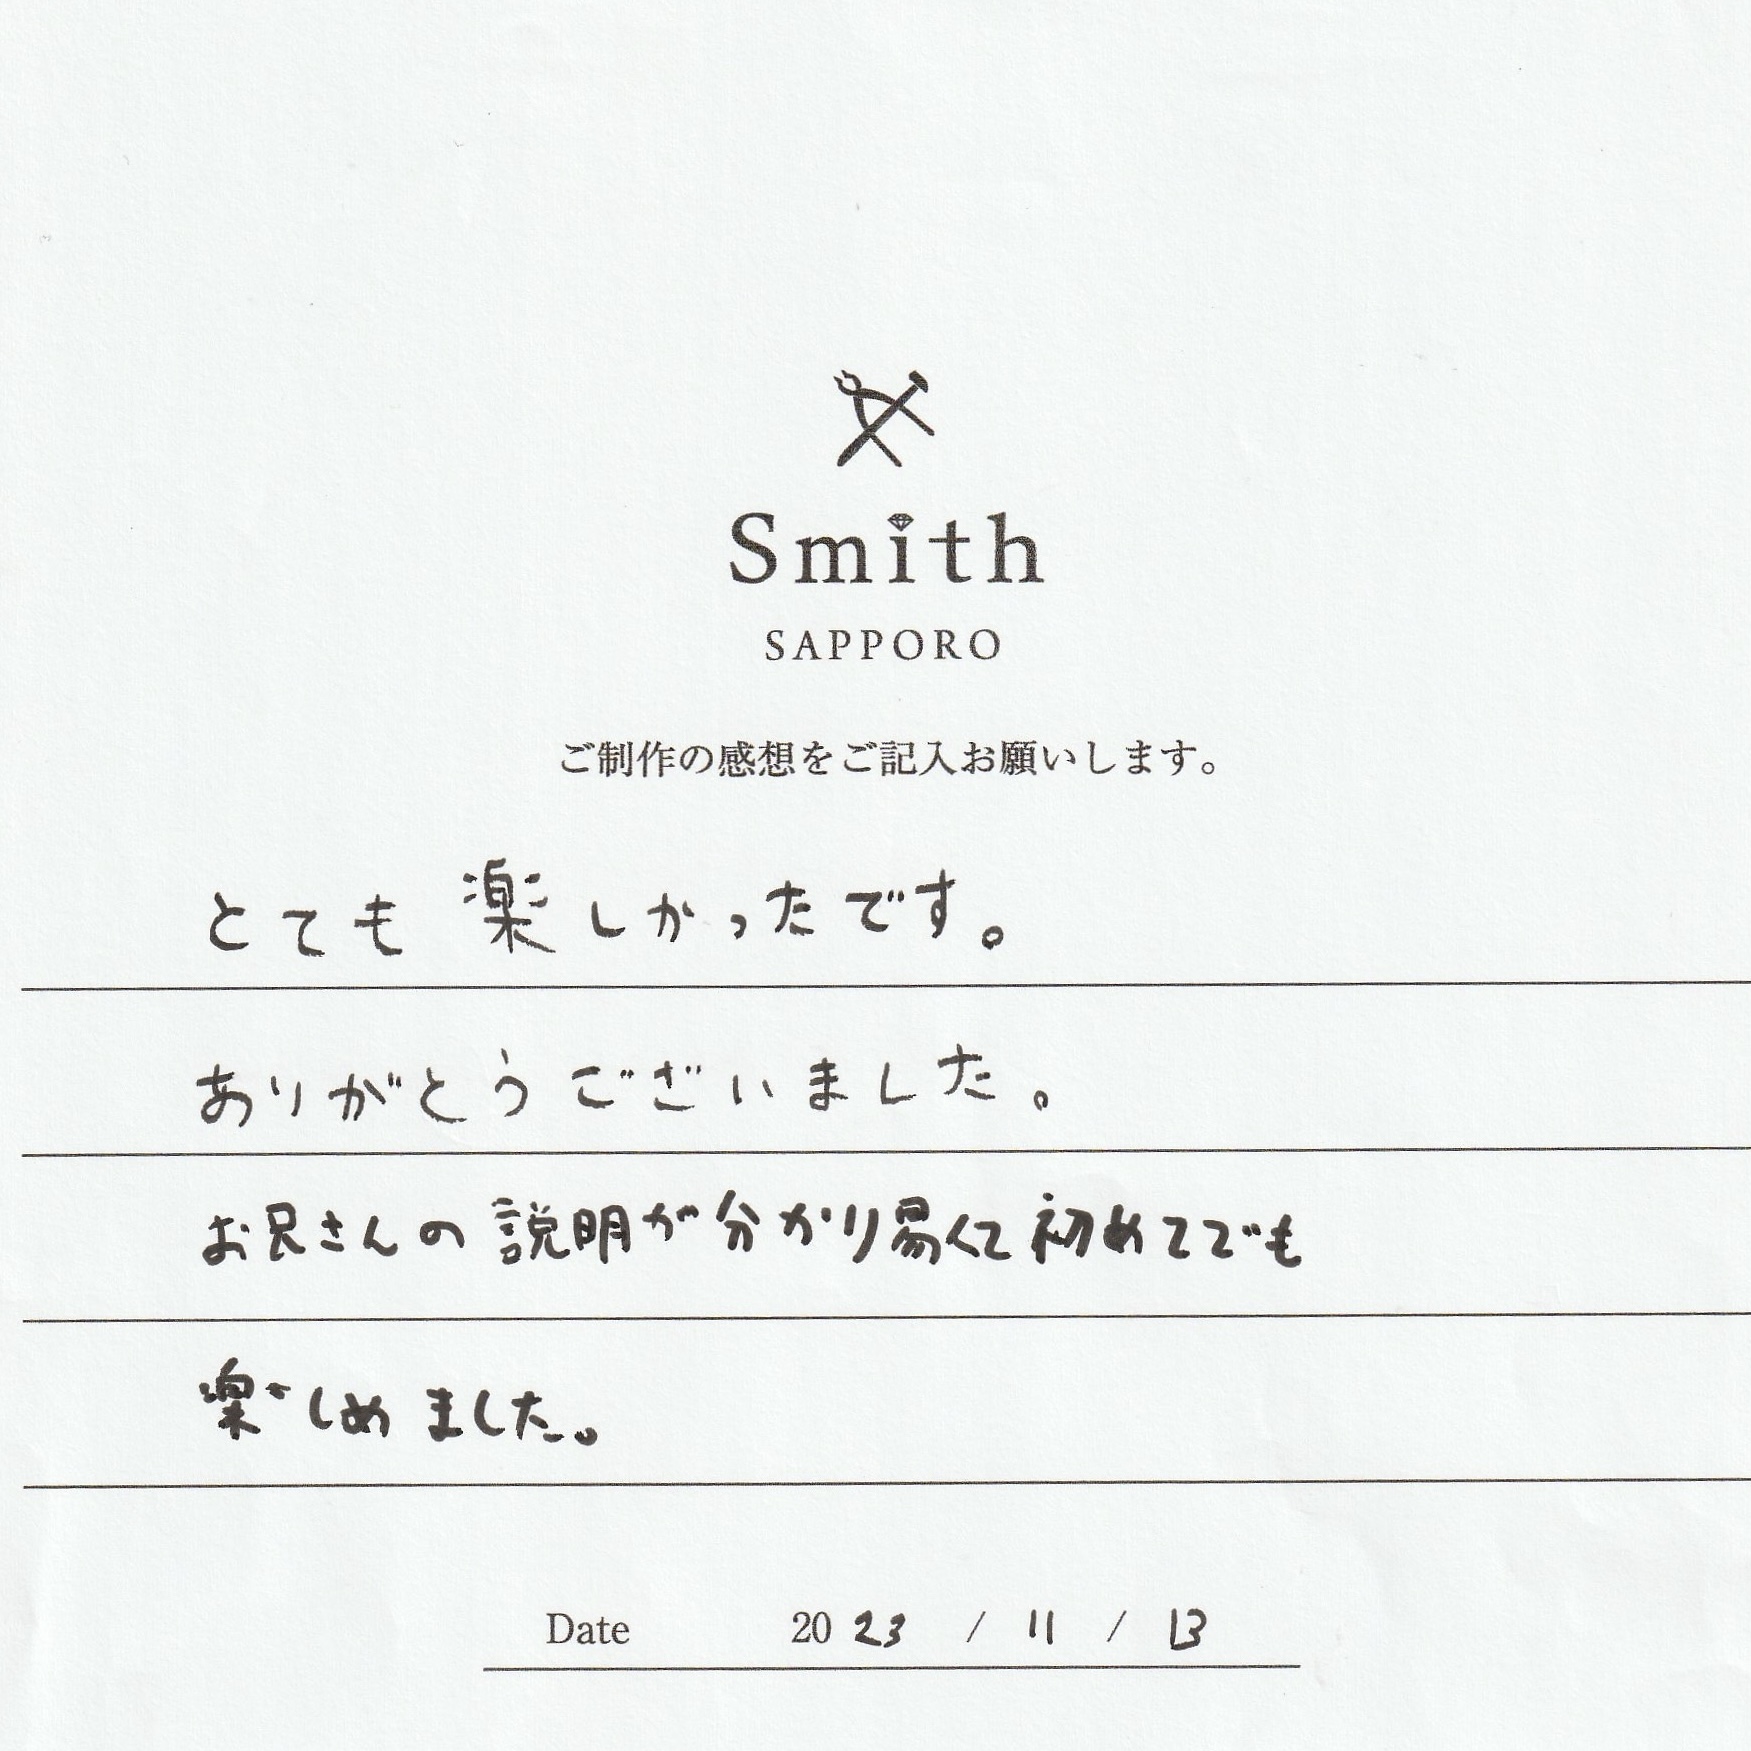 Smith
SAPPORO
ご制作の感想をご記入お願いします。
とても楽しかったです。
ありがとうございました。
お兄さんの説明が分かり易くて初めてでも
楽しめました。
Date 2023 / 11 / 13